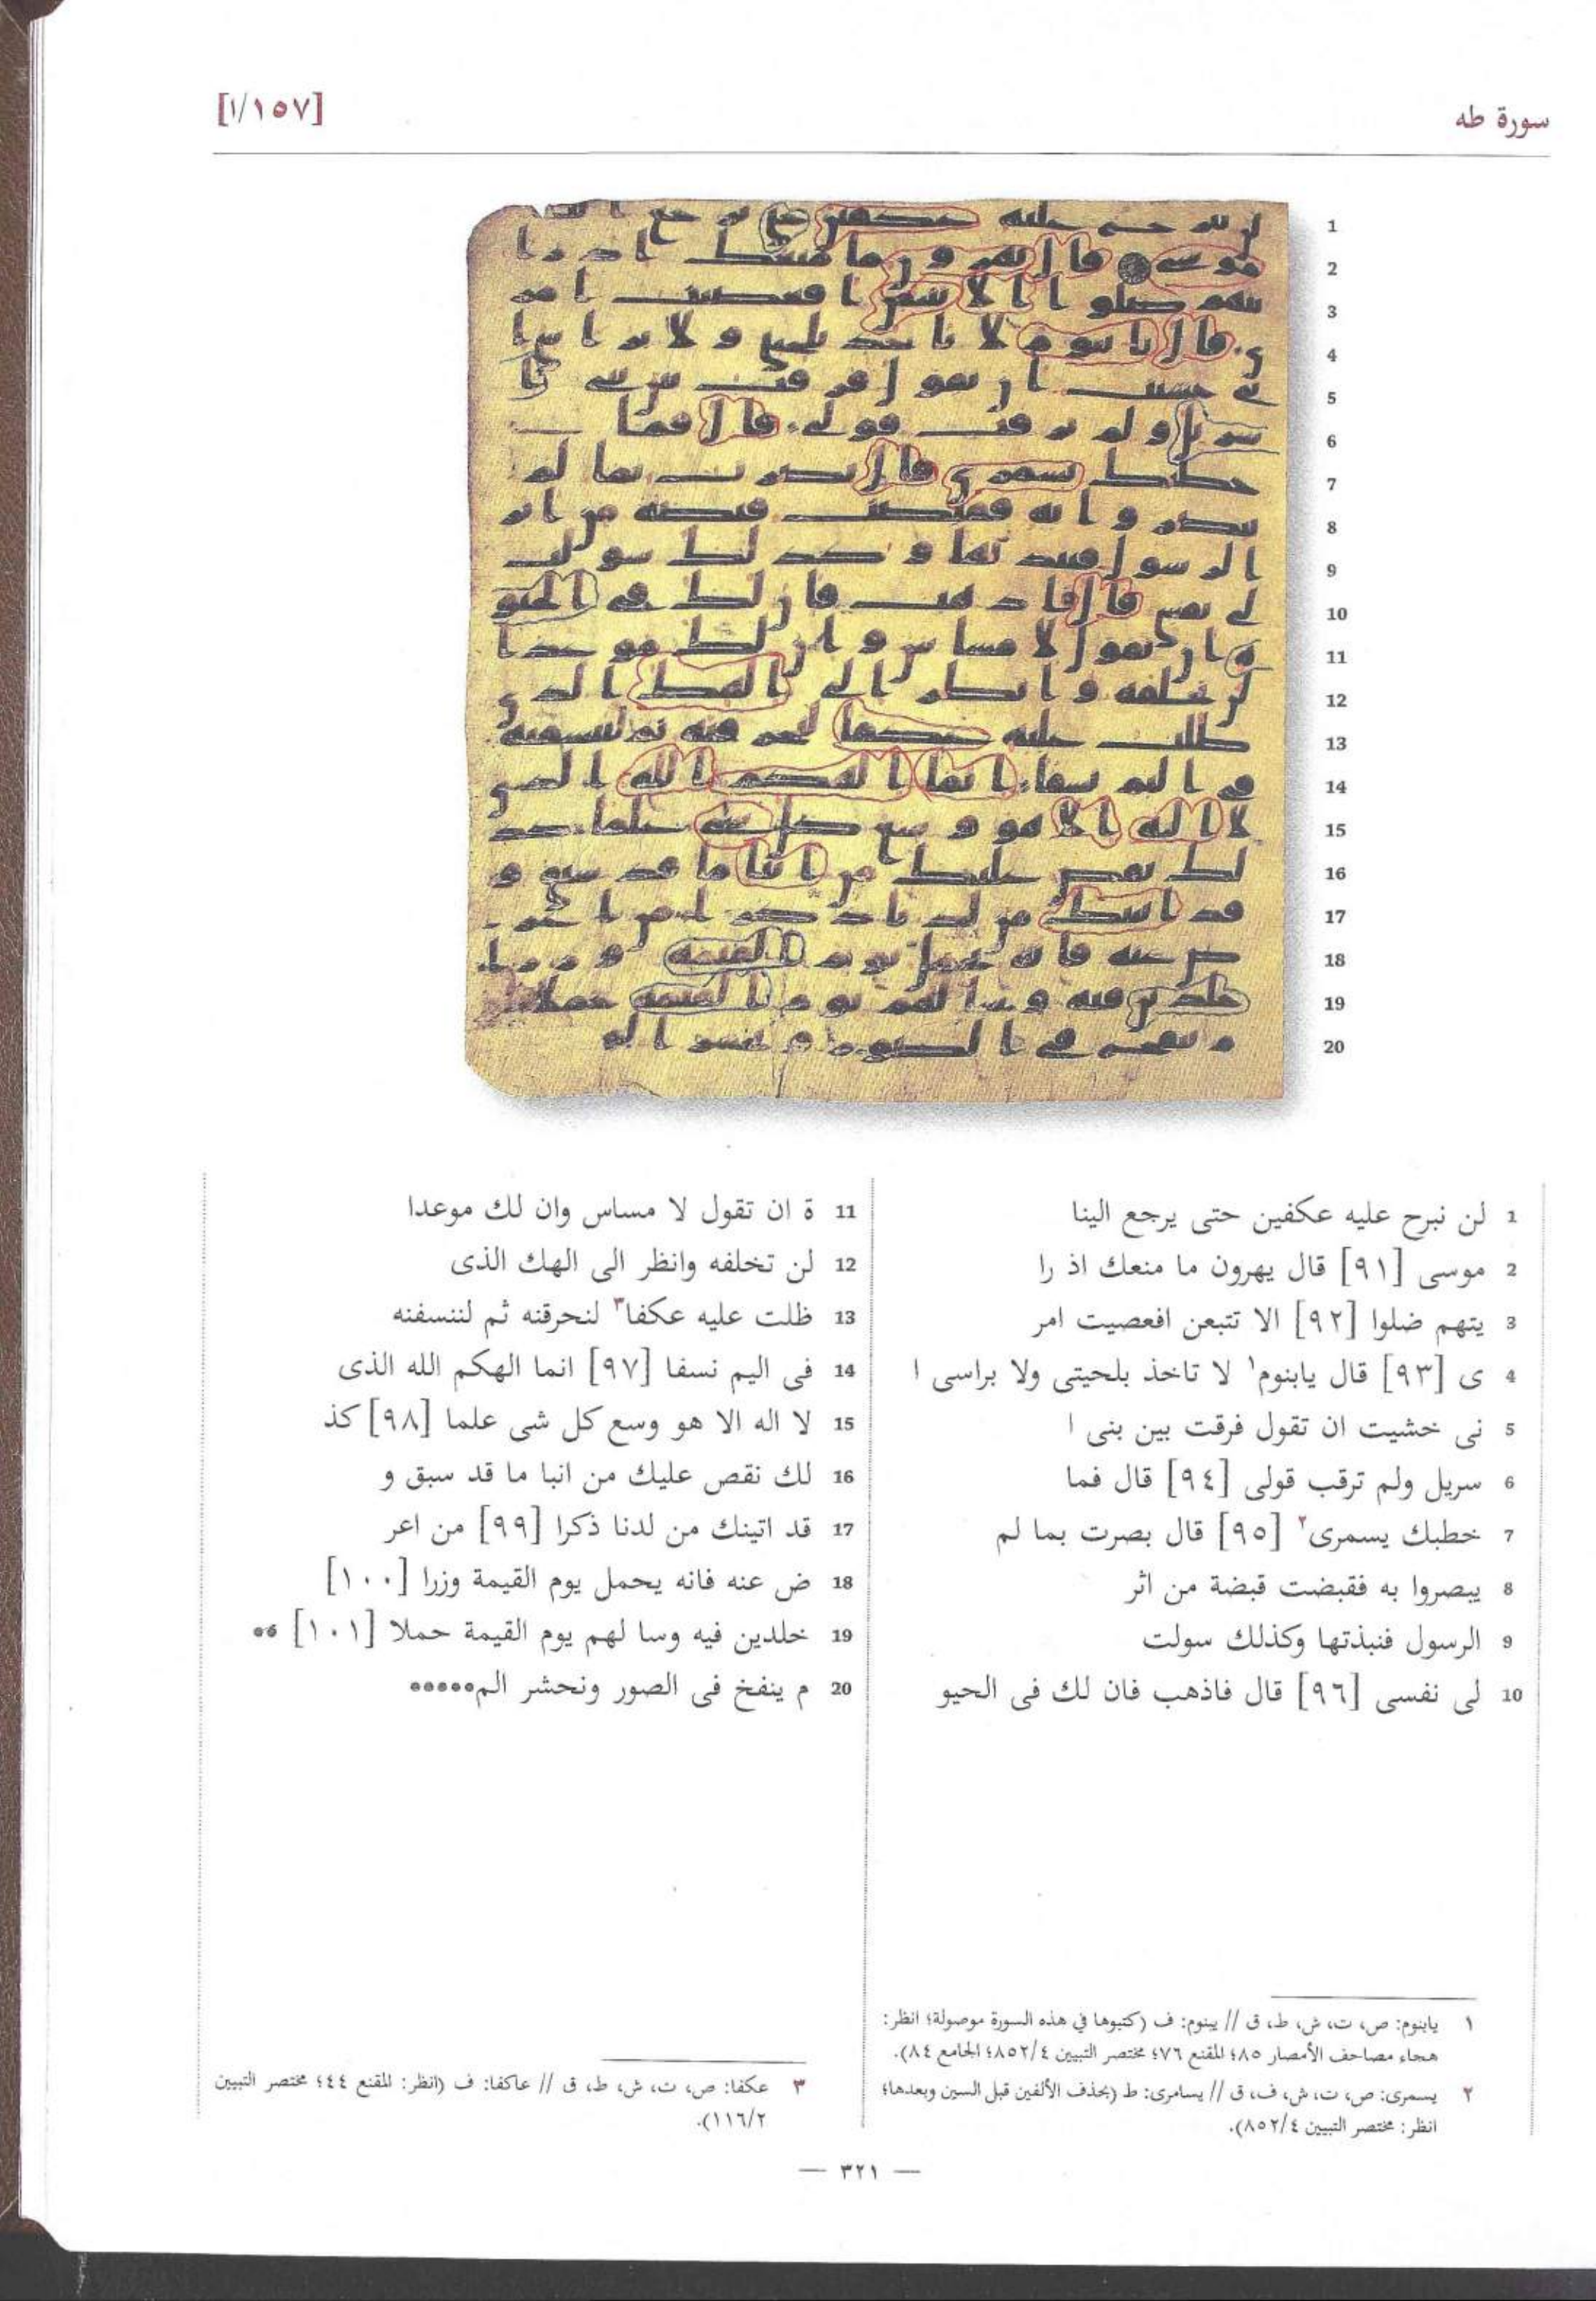 سورة طه
[١/١٥٧]
1 لن نبرح عليه عكفين حتى يرجع الينا
2 موسى [٩١] قال يهرون ما منعك اذ را
3 يتهم ضلوا [٩٢] الا تتبعن افعصيت امر
4 ى [٩٣] قال يابنوم١ لا تاخذ بلحيتى ولا براسى ا
5 نى خشيت ان تقول فرقت بين بنى ا
6 سريل ولم ترقب قولى [٩٤] قال فما
7 خطبك يسمرى٢ [٩٥] قال بصرت بما لم
8 يبصروا به فقبضت قبضة من اثر
9 الرسول فنبذتها وكذلك سولت
10 لى نفسى [٩٦] قال فاذهب فان لك فى الحيو
11 ة ان تقول لا مساس وان لك موعدا
12 لن تخلفه وانظر الى الهك الذى
13 ظلت عليه عكفا٣ لنحرقنه ثم لننسفنه
14 فى اليم نسفا [٩٧] انما الهكم الله الذى
15 لا اله الا هو وسع كل شى علما [٩٨] كذ
16 لك نقص عليك من انبا ما قد سبق و
17 قد اتينك من لدنا ذكرا [٩٩] من اعر
18 ض عنه فانه يحمل يوم القيمة وزرا [١٠٠]
19 خلدين فيه وسا لهم يوم القيمة حملا [١٠١] **
20 م ينفخ فى الصور ونحشر الم*****
١ يابنوم: ص، ت، ش، ط، ق // يبنوم: ف (كتبوها في هذه السورة موصولة؛ انظر:
هجاء مصاحف الأمصار ٨٥؛ المقنع ٧٦؛ مختصر التبيين ٨٥٢/٤؛ الجامع ٨٤).
٢ يسمرى: ص، ت، ش، ف، ق // يسامرى: ط (بحذف الألفين قبل السين وبعدها؛
انظر: مختصر التبيين ٨٥٢/٤).
٣ عكفا: ص، ت، ش، ط، ق // عاكفا: ف (انظر: المقنع ٤٤؛ مختصر التبيين
١١٦/٢).
— ٣٢١ —